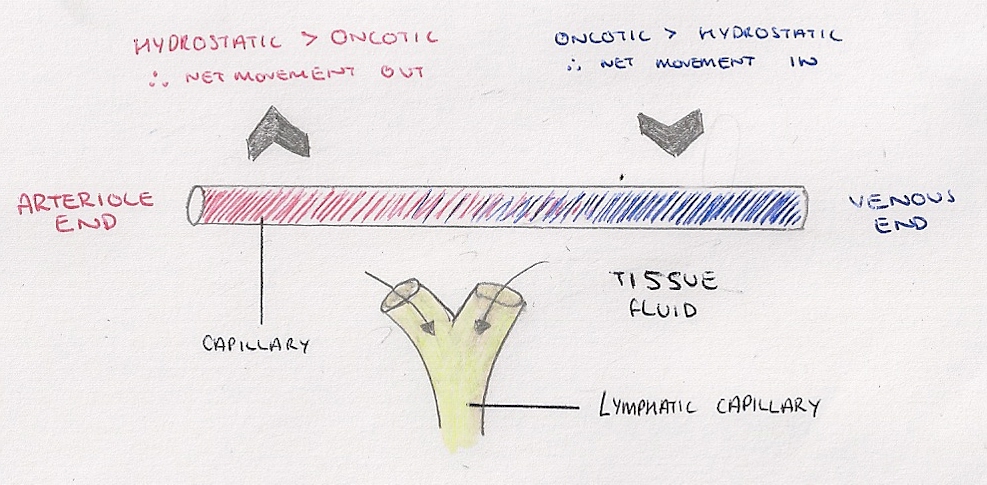 HYDROSTATIC > ONCOTIC
∴ NET MOVEMENT OUT
ONCOTIC > HYDROSTATIC
∴ NET MOVEMENT IN
ARTERIOLE
END
VENOUS
END
TISSUE
FLUID
CAPILLARY
LYMPHATIC CAPILLARY